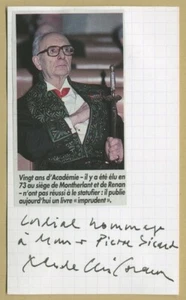 Vingt ans d'Académie – il y a été élu en
73 au siège de Montherlant et de Renan
– n'ont pas réussi à le statufier : il publie
aujourd'hui un livre « imprudent ».
Cordial hommage
à Monsr Pierre Sicard